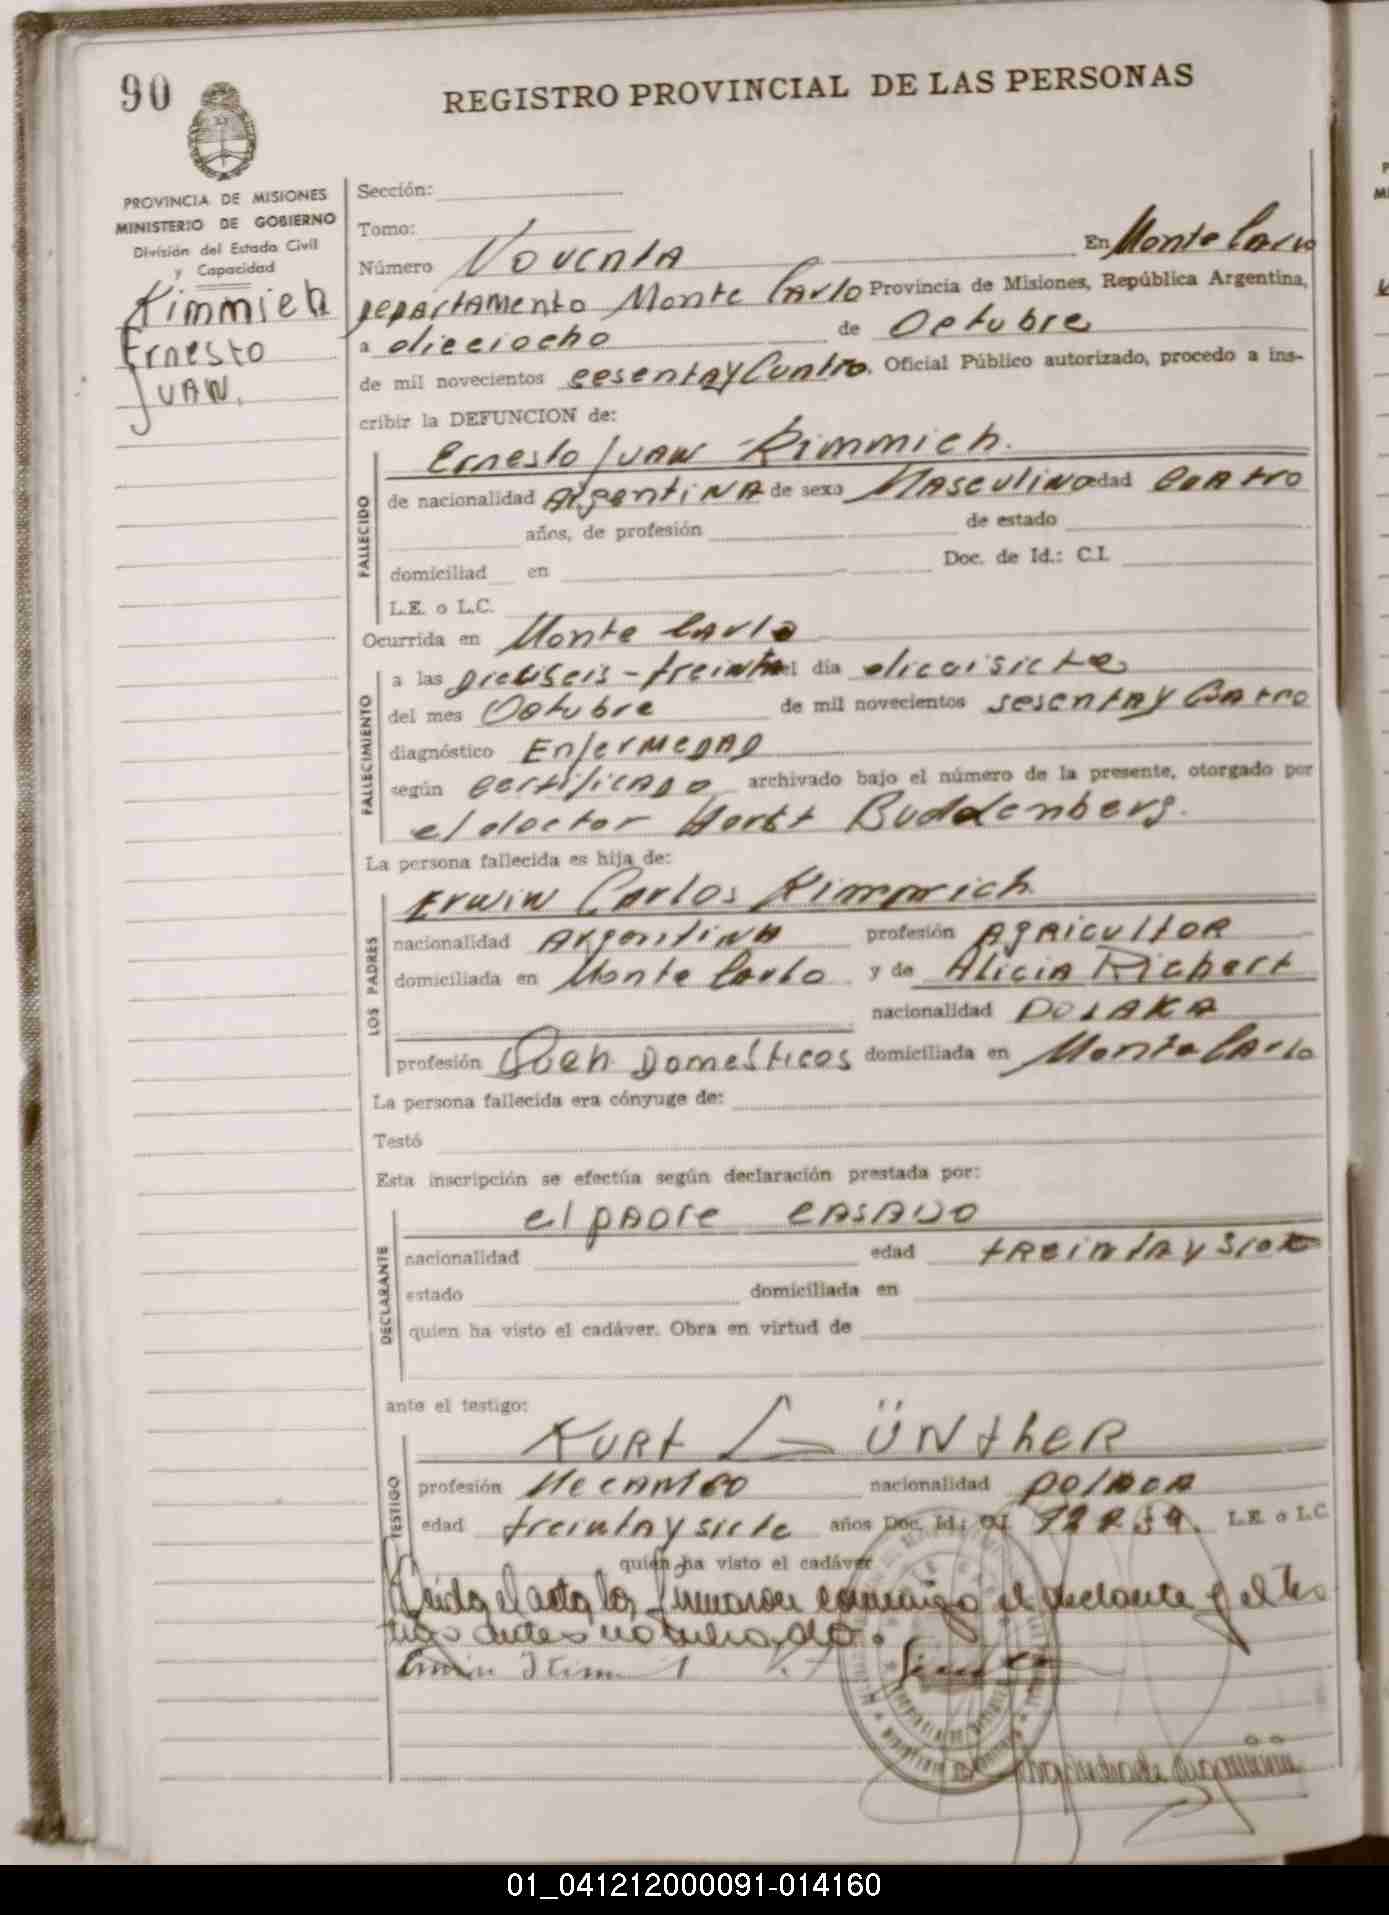 90
REGISTRO PROVINCIAL DE LAS PERSONAS
PROVINCIA DE MISIONES
MINISTERIO DE GOBIERNO
División del Estado Civil
y Capacidad
Kimmich
Ernesto
JUAN.
Sección:
Tomo:
Número Noventa En Monte Carlo
Departamento Monte Carlo Provincia de Misiones, República Argentina,
a dieciocho de Octubre
de mil novecientos sesenta y Cuatro, Oficial Público autorizado, procedo a ins-
cribir la DEFUNCION de:
Ernesto Juan Kimmich.
FALLECIDO
de nacionalidad Argentina de sexo Masculino edad Cuatro
años, de profesión de estado
domiciliad en Doc. de Id.: C.I.
L.E. o L.C.
Ocurrida en Monte Carlo
FALLECIMIENTO
a las dieciseis - treinta el día diecisiete
del mes Octubre de mil novecientos sesenta y Cuatro
diagnóstico Enfermedad
según Certificado archivado bajo el número de la presente, otorgado por
el doctor Horst Buddenberg.
La persona fallecida es hija de:
LOS PADRES
Erwin Carlos Kimmich
nacionalidad Argentina profesión Agricultor
domiciliada en Monte Carlo y de Alicia Richert
nacionalidad POLAKA
profesión Queh Domesticos domiciliada en Monte Carlo
La persona fallecida era cónyuge de:
Testó
Esta inscripción se efectúa según declaración prestada por:
DECLARANTE
el padre casado
nacionalidad edad treinta y siete
estado domiciliada en
quien ha visto el cadáver. Obra en virtud de
ante el testigo:
TESTIGO
KURT GÜNTHER
profesión Mecanico nacionalidad polaca
edad treinta y siete años Doc. Id.: C.I. L.E. o L.C.
quien ha visto el cadáver
Leida el acta la firmaron conmigo el declarante y el tes
tigo antes nombrado.
Erwin Kimm
01_041212000091-014160